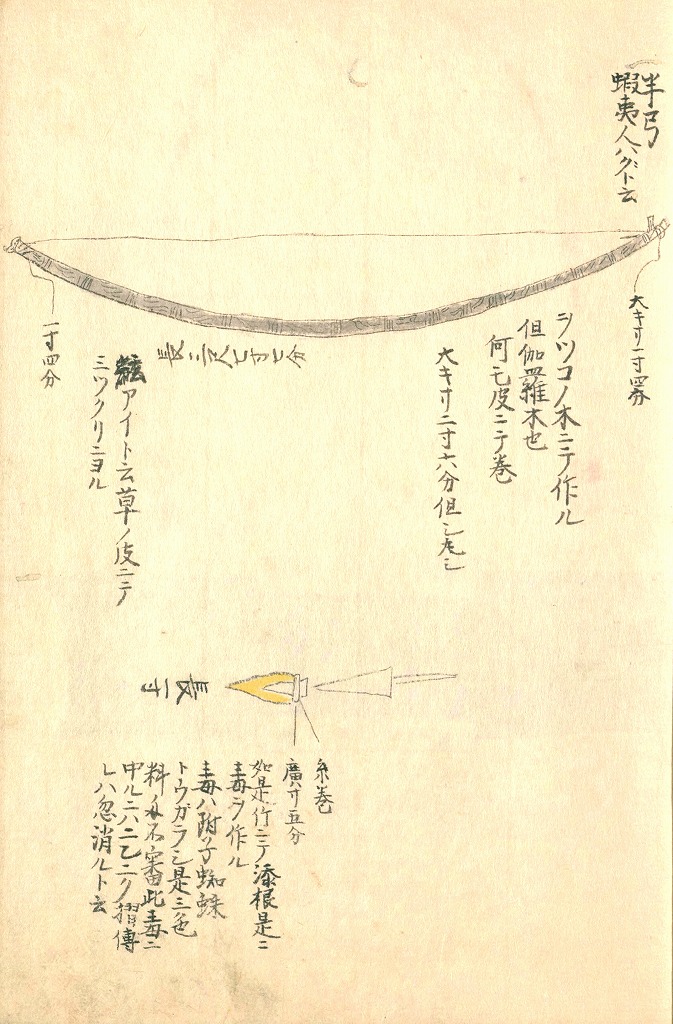 半弓
蝦夷人ハグト云
大キサ一寸四分
ヲツコノ木ニテ作ル
但伽羅木也
何モ皮ニテ巻
大キサ二寸六分但シ丸シ
長三尺七寸七分
絃アイト云草ノ皮ニテ
ミツクリニヨル
一寸四分
長二寸
糸巻
廣サ五分
如是竹ニテ添根是ニ
毒ヲ作ル
毒ハ附子蜘蛛
トウガラシ是三色
料舟不審此毒ニ
中ルニハニ乙ニク摺傳
レハ忽消ルト云